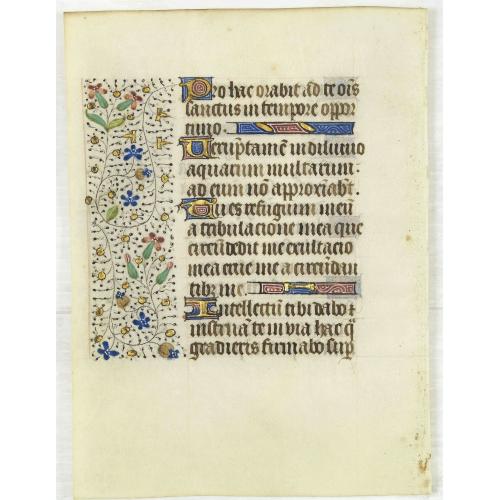 Pro hac orabit ad te ois
sanctus in tempore oppor
tuno.
Veruptamē in diluuio
aquarum multarum:
ad eum nō approxiabt.
Tu es refugium meū
a tribulacione mea que
circūdedit me exultacio
mea erue me a circūdan
tibz me
Intellectū tibi dabo et
instruā te in via hac q̄
gradieris firmabo sup